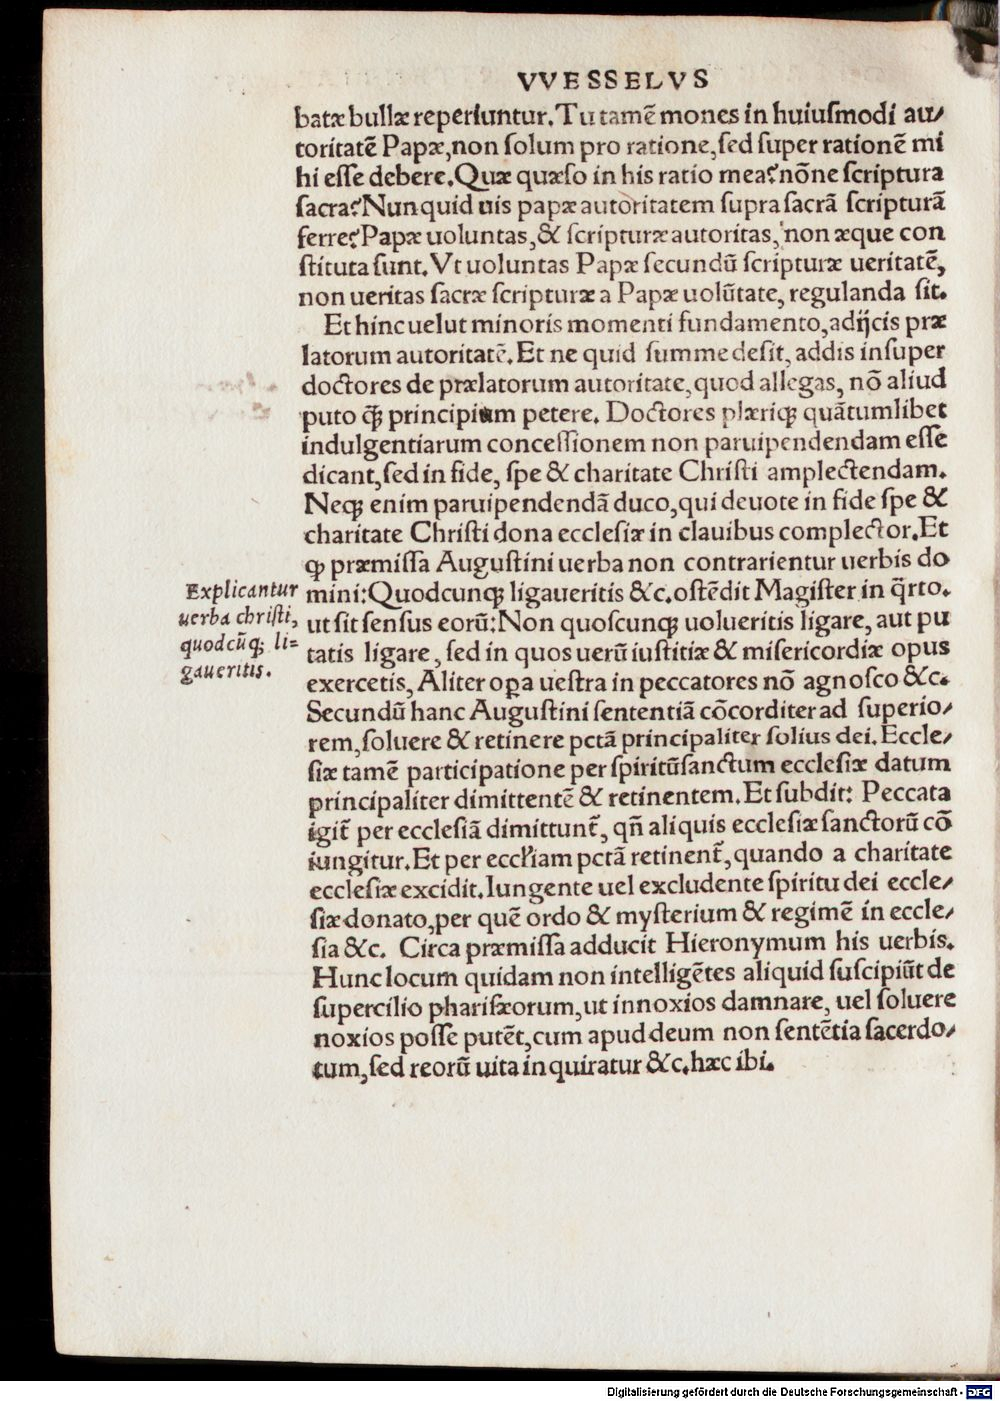 VVESSELVS
batæ bullæ reperiuntur. Tu tamē mones in huiuſmodi au⸗
toritatē Papæ, non ſolum pro ratione, ſed ſuper rationē mi
hi eſſe debere. Quæ quæſo in his ratio mea? nōne ſcriptura
ſacra? Nunquid uis papæ autoritatem ſupra ſacrā ſcripturā
ferre? Papæ uoluntas, & ſcripturæ autoritas, non æque con
ſtituta ſunt. Vt uoluntas Papæ ſecundū ſcripturæ ueritatē,
non ueritas ſacræ ſcripturæ a Papæ uolūtate, regulanda ſit.
Et hinc uelut minoris momenti fundamento, adijcis præ
latorum autoritatē. Et ne quid ſumme deſit, addis inſuper
doctores de prælatorum autoritate, quod allegas, nō aliud
puto ꝙ̃ principium petere. Doctores plæriqꝫ quātumlibet
indulgentiarum conceſſionem non paruipendendam eſſe
dicant, ſed in fide, ſpe & charitate Chriſti amplectendam.
Neqꝫ enim paruipendendā duco, qui deuote in fide ſpe &
charitate Chriſti dona eccleſiæ in clauibus complector. Et
ꝙ præmiſſa Auguſtini uerba non contrarientur uerbis do
Explicantur
uerba chriſti,
quodcūqꝫ li=
gaueritis.
mini: Quodcunqꝫ ligaueritis &c. oſtēdit Magiſter in q̄rto.
ut ſit ſenſus eorū: Non quoſcunqꝫ uolueritis ligare, aut pu
tatis ligare, ſed in quos uerū iuſtitiæ & miſericordiæ opus
exercetis, Aliter oꝑa ueſtra in peccatores nō agnoſco &c.
Secundū hanc Auguſtini ſententiā cōcorditer ad ſuperio⸗
rem, ſoluere & retinere pctā principaliter ſolius dei. Eccle⸗
ſiæ tamē participatione per ſpiritūſanctum eccleſiæ datum
principaliter dimittentē & retinentem. Et ſubdit: Peccata
igit̃ per eccleſiā dimittunt̃, qñ aliquis eccleſiæ ſanctorū cō
iungitur. Et per eccl'iam pctā retinent̃, quando a charitate
eccleſiæ excidit. Iungente uel excludente ſpiritu dei eccle⸗
ſiæ donato, per quē ordo & myſterium & regimē in eccle⸗
ſia &c. Circa præmiſſa adducit Hieronymum his uerbis.
Hunc locum quidam non intelligētes aliquid ſuſcipiūt de
ſupercilio phariſæorum, ut innoxios damnare, uel ſoluere
noxios poſſe putēt, cum apud deum non ſentētia ſacerdo⸗
tum, ſed reorū uita inquiratur &c. hæc ibi.
Digitalisierung gefördert durch die Deutsche Forschungsgemeinschaft - DFG